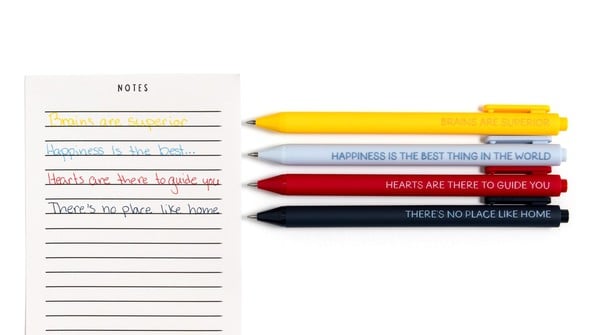 NOTES
Brains are superior
Happiness is the best...
Hearts are there to guide you
There's no place like home
BRAINS ARE SUPERIOR
HAPPINESS IS THE BEST THING IN THE WORLD
HEARTS ARE THERE TO GUIDE YOU
THERE'S NO PLACE LIKE HOME